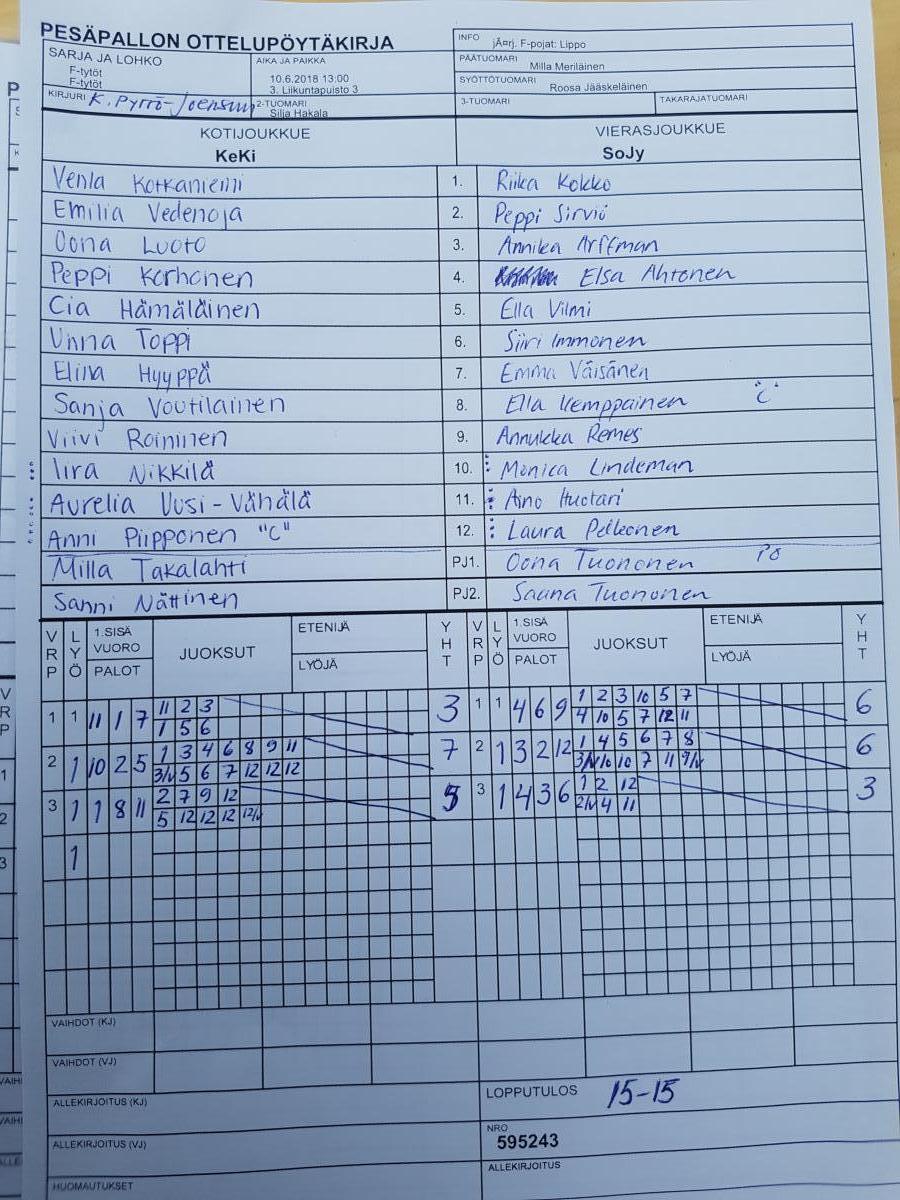 PESÄPALLON OTTELUPÖYTÄKIRJA
SARJA JA LOHKO
F-tytöt
F-tytöt
AIKA JA PAIKKA
10.6.2018 13:00
3. Liikuntapuisto 3
KIRJURI K. Pyrrö-Joensuu
2-TUOMARI
Silja Hakala
INFO jÃ¤rj. F-pojat: Lippo
PÄÄTUOMARI Milla Meriläinen
SYÖTTÖTUOMARI Roosa Jääskeläinen
3-TUOMARI TAKARAJATUOMARI
KOTIJOUKKUE VIERASJOUKKUE
KeKi SoJy
Venla Kotkaniemi 1. Riika Kokko
Emilia Vedenoja 2. Peppi Sirviö
Oona Luoto 3. Annika Arffman
Peppi Korhonen 4. Elsa Ahtonen
Cia Hämäläinen 5. Ella Vilmi
Unna Toppi 6. Siiri Immonen
Elina Hyyppä 7. Emma Väisänen
Sanja Voutilainen 8. Ella Kemppainen "C"
Viivi Roininen 9. Annukka Remes
Iira Nikkilä 10. Monica Lindeman
Aurelia Uusi-Vähälä 11. Aino Huotari
Anni Piipponen "C" 12. Laura Pelkonen
Milla Takalahti PJ1. Oona Tuononen
Sanni Nättinen PJ2. Sauna Tuononen
VRP LYÖ 1.SISÄ VUORO PALOT JUOKSUT ETENIJÄ LYÖJÄ YHT VRP LYÖ 1.SISÄ VUORO PALOT JUOKSUT ETENIJÄ LYÖJÄ YHT
1 1 11 1 7 11 2 3 3 1 1 4 6 9 1 2 3 10 5 7 6
1 5 6 4 10 5 7 12 11
2 1 10 2 5 1 3 4 6 8 9 11 7 2 1 3 2 12 1 4 5 6 7 8 6
3/V 5 6 7 12 12 12 3/V 10 10 7 11 9/V
3 1 1 8 11 2 7 9 12 5 3 1 4 3 6 1 2 12 3
5 12 12 12 12/V 2/V 4 11
1
VAIHDOT (KJ)
VAIHDOT (VJ)
ALLEKIRJOITUS (KJ)
LOPPUTULOS 15-15
ALLEKIRJOITUS (VJ)
NRO
595243
ALLEKIRJOITUS
HUOMAUTUKSET